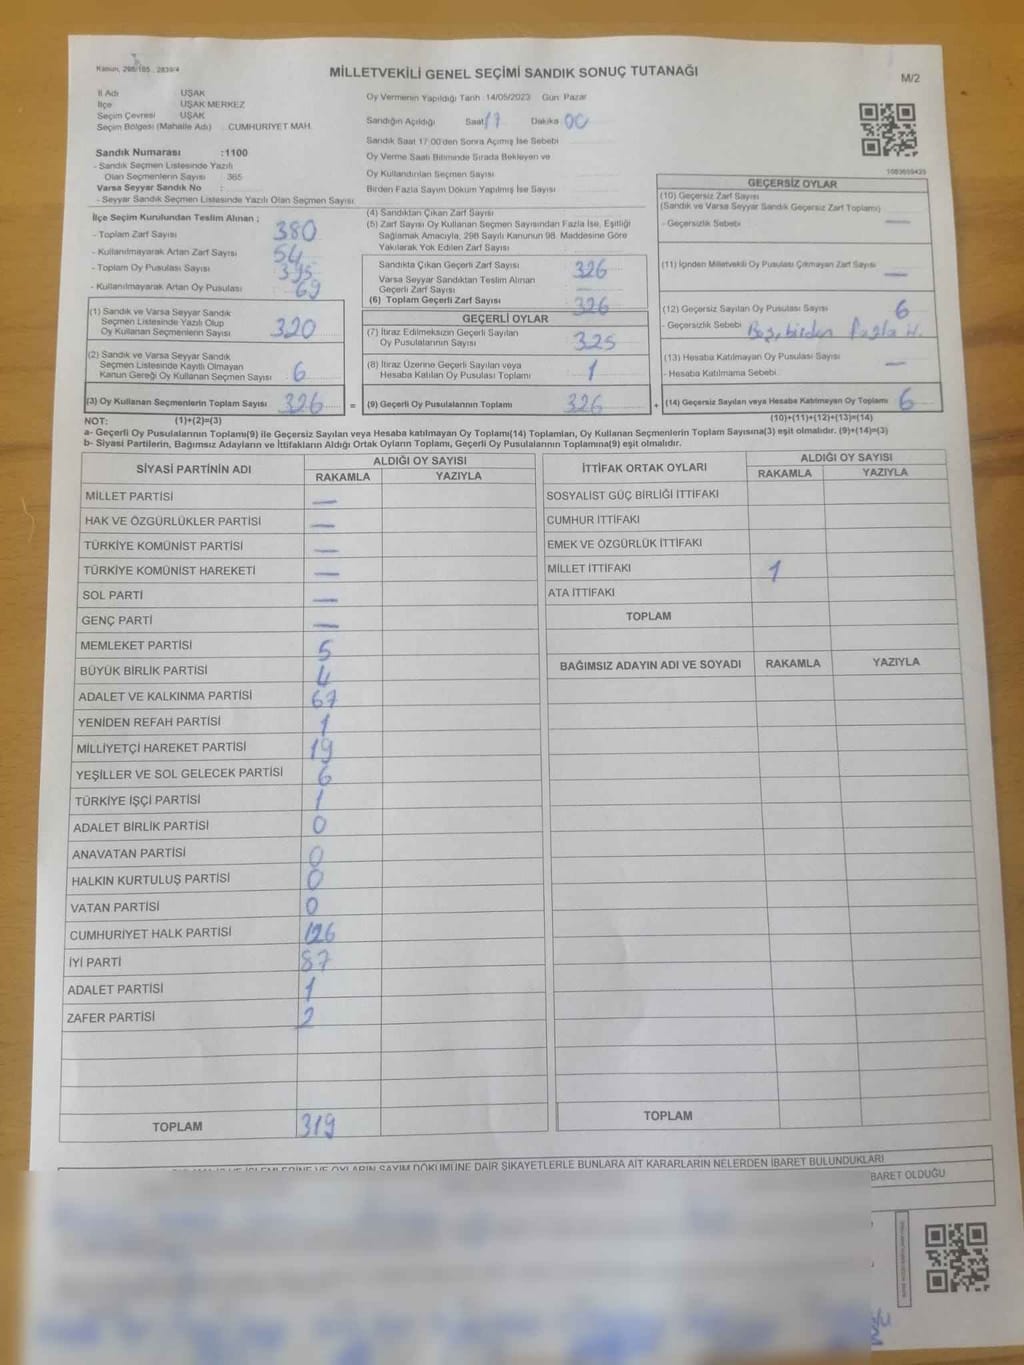 Kanun, 298/105 , 2839/4
MİLLETVEKİLİ GENEL SEÇİMİ SANDIK SONUÇ TUTANAĞI
M/2
İl Adı UŞAK
İlçe UŞAK MERKEZ
Seçim Çevresi UŞAK
Seçim Bölgesi (Mahalle Adı) CUMHURİYET MAH.
Sandık Numarası :1100
- Sandık Seçmen Listesinde Yazılı
Olan Seçmenlerin Sayısı 365
Varsa Seyyar Sandık No :
- Seyyar Sandık Seçmen Listesinde Yazılı Olan Seçmen Sayısı
Oy Vermenin Yapıldığı Tarih :14/05/2023 Gün: Pazar
Sandığın Açıldığı Saat 17 Dakika 00
Sandık Saat 17:00'den Sonra Açılmış İse Sebebi
Oy Verme Saati Bitiminde Sırada Bekleyen ve
Oy Kullandırılan Seçmen Sayısı
Birden Fazla Sayım Döküm Yapılmış İse Sayısı
İlçe Seçim Kurulundan Teslim Alınan ;
- Toplam Zarf Sayısı 380
- Kullanılmayarak Artan Zarf Sayısı 54
- Toplam Oy Pusulası Sayısı 395
- Kullanılmayarak Artan Oy Pusulası 69
(1) Sandık ve Varsa Seyyar Sandık
Seçmen Listesinde Yazılı Olup
Oy Kullanan Seçmenlerin Sayısı 320
(2) Sandık ve Varsa Seyyar Sandık
Seçmen Listesinde Kayıtlı Olmayan
Kanun Gereği Oy Kullanan Seçmen Sayısı 6
(3) Oy Kullanan Seçmenlerin Toplam Sayısı 326
(4) Sandıktan Çıkan Zarf Sayısı
(5) Zarf Sayısı Oy Kullanan Seçmen Sayısından Fazla İse, Eşitliği
Sağlamak Amacıyla, 298 Sayılı Kanunun 98. Maddesine Göre
Yakılarak Yok Edilen Zarf Sayısı
Sandıkta Çıkan Geçerli Zarf Sayısı 326
Varsa Seyyar Sandıktan Teslim Alınan
Geçerli Zarf Sayısı —
(6) Toplam Geçerli Zarf Sayısı 326
GEÇERLİ OYLAR
(7) İtiraz Edilmeksizin Geçerli Sayılan
Oy Pusulalarının Sayısı 325
(8) İtiraz Üzerine Geçerli Sayılan veya
Hesaba Katılan Oy Pusulası Toplamı 1
= (9) Geçerli Oy Pusulalarının Toplamı 326
1083659425
GEÇERSİZ OYLAR
(10) Geçersiz Zarf Sayısı
(Sandık ve Varsa Seyyar Sandık Geçersiz Zarf Toplamı)
- Geçersizlik Sebebi —
(11) İçinden Milletvekili Oy Pusulası Çıkmayan Zarf Sayısı —
(12) Geçersiz Sayılan Oy Pusulası Sayısı 6
- Geçersizlik Sebebi Boş, birden fazla
(13) Hesaba Katılmayan Oy Pusulası Sayısı —
- Hesaba Katılmama Sebebi
+ (14) Geçersiz Sayılan veya Hesaba Katılmayan Oy Toplamı 6
NOT: (1)+(2)=(3) (10)+(11)+(12)+(13)=(14)
a- Geçerli Oy Pusulalarının Toplamı(9) ile Geçersiz Sayılan veya Hesaba katılmayan Oy Toplamı(14) Toplamları, Oy Kullanan Seçmenlerin Toplam Sayısına(3) eşit olmalıdır. (9)+(14)=(3)
b- Siyasi Partilerin, Bağımsız Adayların ve İttifakların Aldığı Ortak Oyların Toplamı, Geçerli Oy Pusulalarının Toplamına(9) eşit olmalıdır.
SİYASİ PARTİNİN ADI ALDIĞI OY SAYISI
RAKAMLA YAZIYLA
MİLLET PARTİSİ —
HAK VE ÖZGÜRLÜKLER PARTİSİ —
TÜRKİYE KOMÜNİST PARTİSİ —
TÜRKİYE KOMÜNİST HAREKETİ —
SOL PARTİ —
GENÇ PARTİ —
MEMLEKET PARTİSİ 5
BÜYÜK BİRLİK PARTİSİ 4
ADALET VE KALKINMA PARTİSİ 67
YENİDEN REFAH PARTİSİ 1
MİLLİYETÇİ HAREKET PARTİSİ 19
YEŞİLLER VE SOL GELECEK PARTİSİ 6
TÜRKİYE İŞÇİ PARTİSİ 1
ADALET BİRLİK PARTİSİ 0
ANAVATAN PARTİSİ 0
HALKIN KURTULUŞ PARTİSİ 0
VATAN PARTİSİ 0
CUMHURİYET HALK PARTİSİ 126
İYİ PARTİ 87
ADALET PARTİSİ 1
ZAFER PARTİSİ 2
TOPLAM 319
İTTİFAK ORTAK OYLARI ALDIĞI OY SAYISI
RAKAMLA YAZIYLA
SOSYALİST GÜÇ BİRLİĞİ İTTİFAKI
CUMHUR İTTİFAKI
EMEK VE ÖZGÜRLÜK İTTİFAKI
MİLLET İTTİFAKI 1
ATA İTTİFAKI
TOPLAM
BAĞIMSIZ ADAYIN ADI VE SOYADI RAKAMLA YAZIYLA
TOPLAM
İŞLEMLERİNE VE OYLARIN SAYIM DÖKÜMÜNE DAİR ŞİKAYETLERLE BUNLARA AİT KARARLARIN NELERDEN İBARET BULUNDUKLARI
BARET OLDUĞU